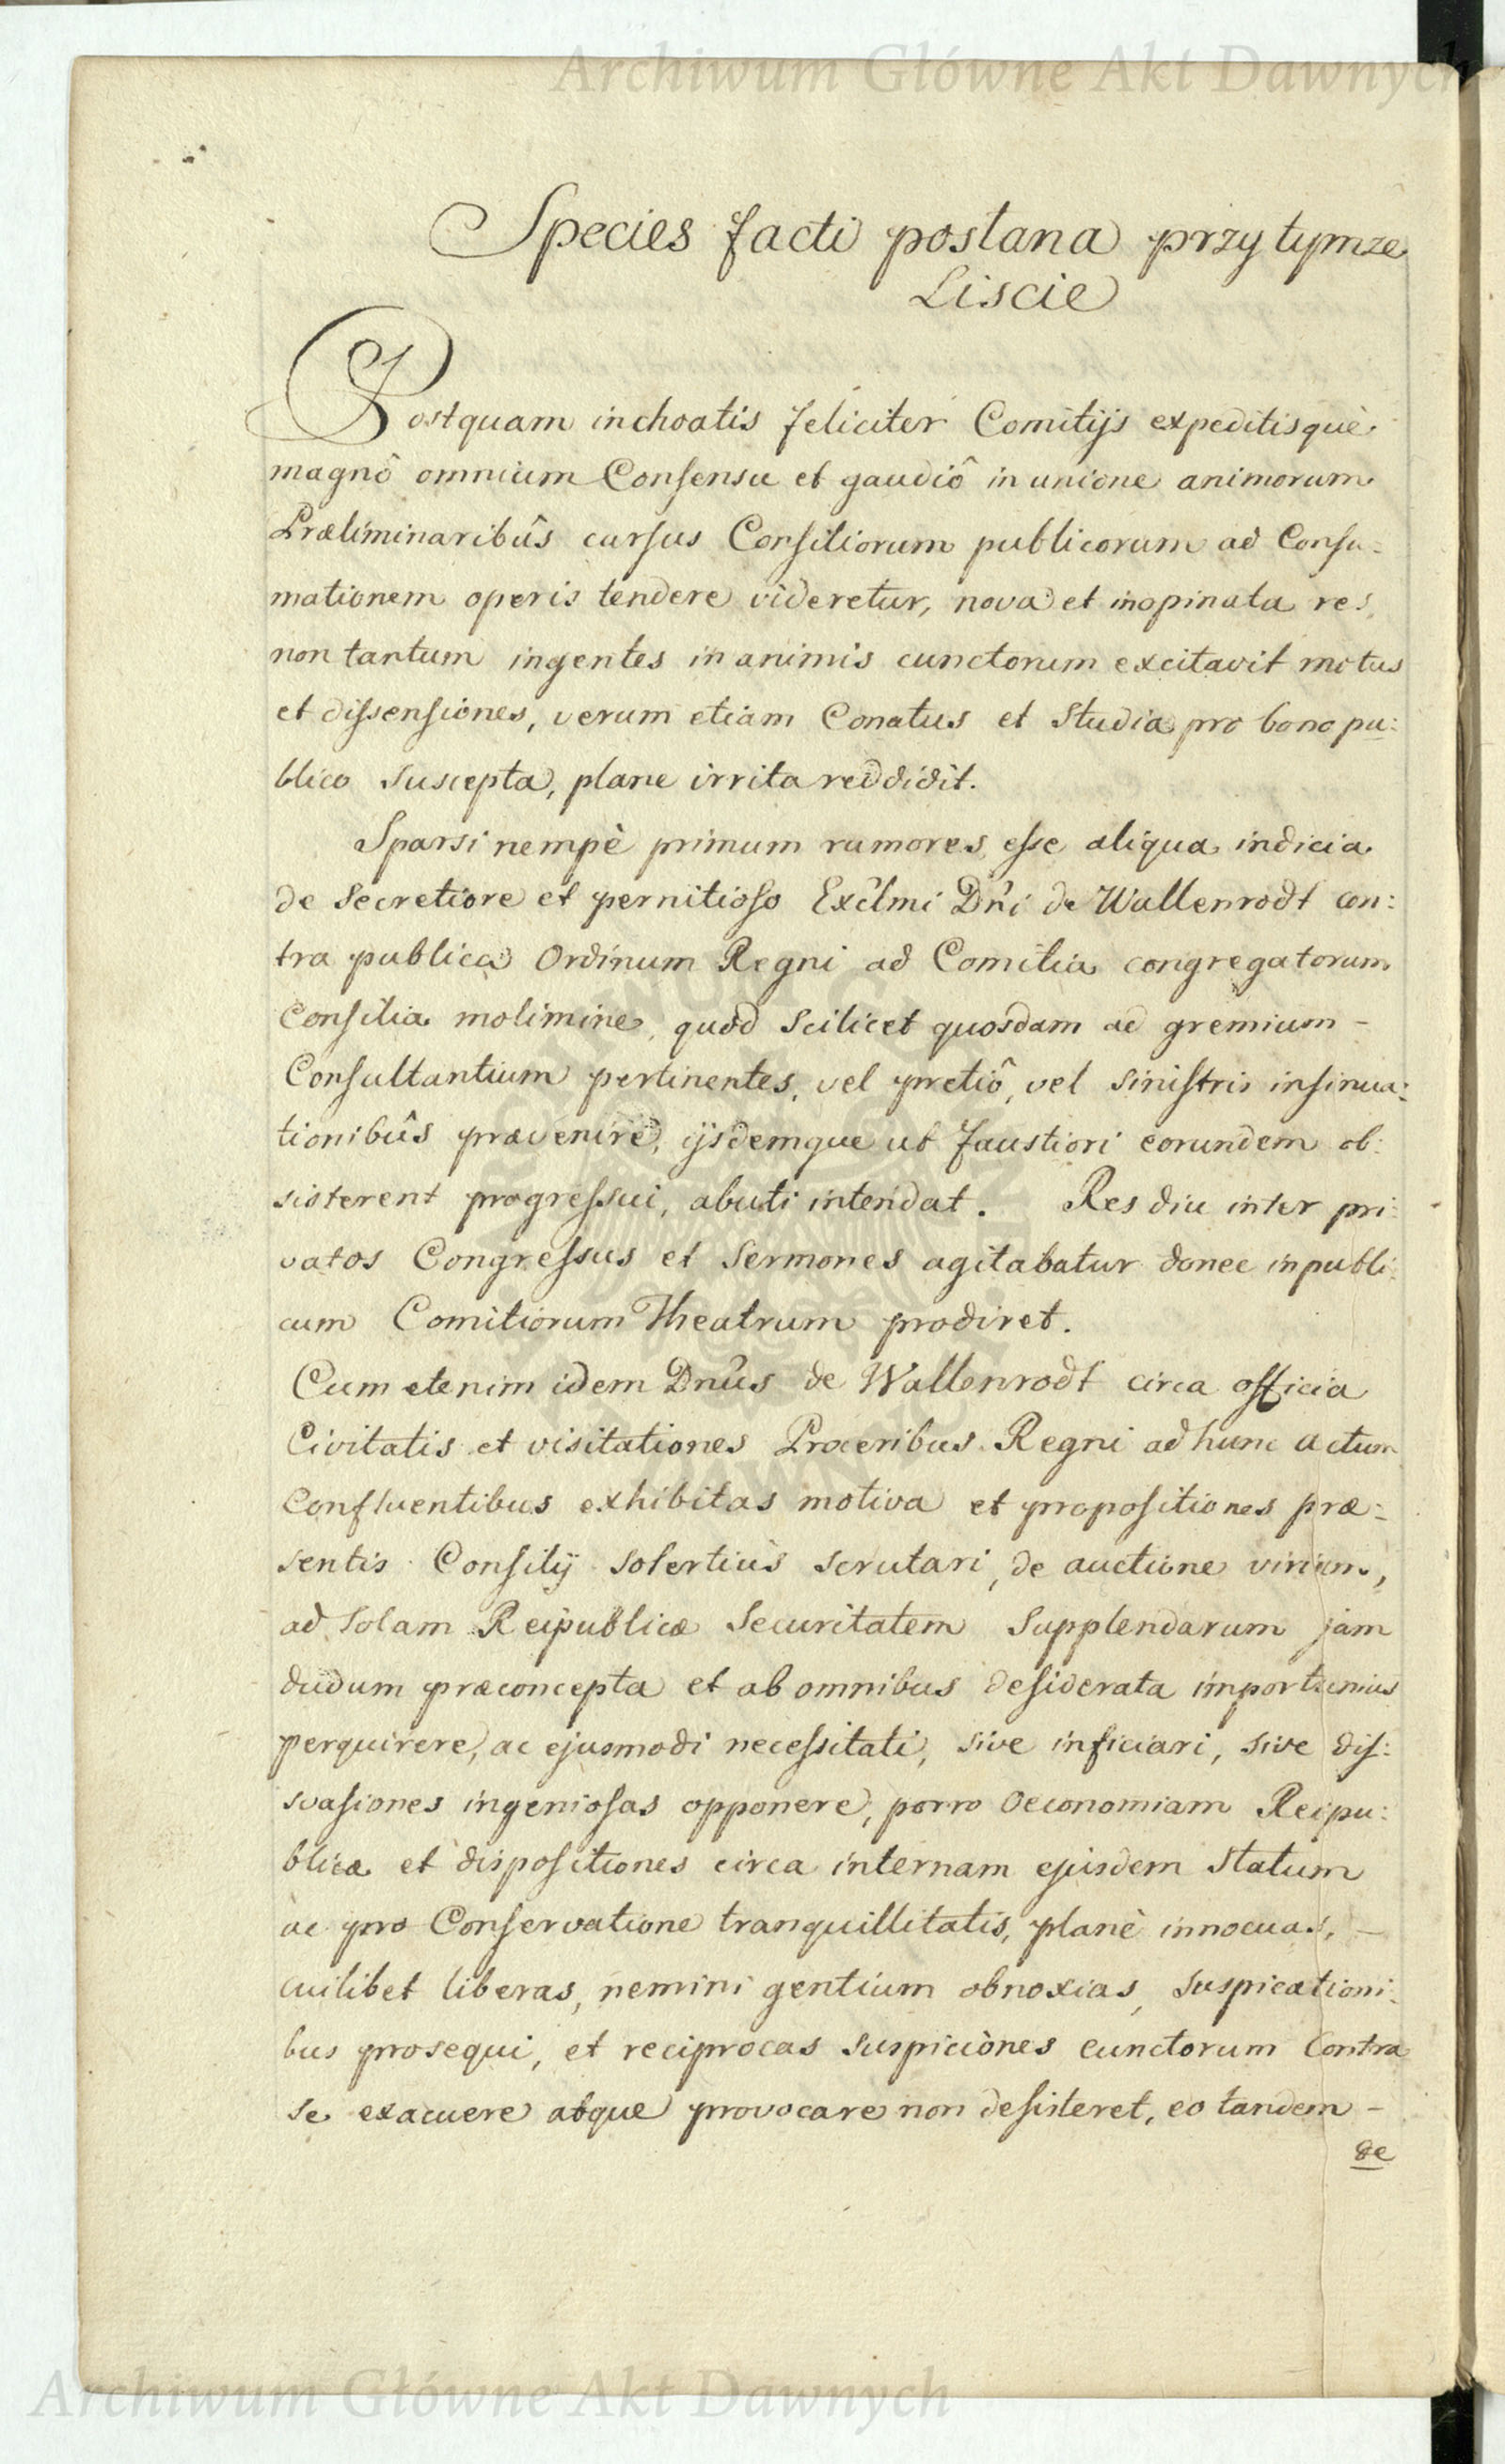 Archiwum Główne Akt Dawnych
Species facti posłana przy tymze
Liscie
Postquam inchoatis feliciter Comitijs expeditisquè
magnô omnium Consensu et gaudiô in unione animorum
Præliminaribûs cursus Consiliorum publicorum ad Consu:
mationem operis tendere videretur, nova et inopinata res
non tantum ingentes in animis cunctorum excitavit motus
et dissensiones, verum etiam Conatus et Studia pro bono pu:
blico Suscepta, plane irrita reddidit.
Sparsi nempè primum rumores esse aliqua indicia
de Secretiore et pernitioso Excl̃mi Dñi de Wallenrodt con:
tra publica Ordinum Regni ad Comitia congregatorum
Consilia molimine, quod Scilicet quosdam ad gremium –
Consultantium pertinentes, vel pretiô, vel Sinistris insinua:
tionibûs prævenire, ijsdemque ut faustiori eorundem ob:
sisterent progressui, abuti intendat. Res diu inter pri:
vatos Congressus et Sermones agitabatur donec in publi:
cum Comitiorum Theatrum prodiret.
Cum etenim idem Dnûs de Wallenrodt circa officia
Civitatis et visitationes Proceribus Regni ad hunc actum
Confluentibus exhibitas motiva et propositiones præ:
sentis Consilij Solertiùs Scrutari, de auctione virium,
ad Solam Reipublicæ Securitatem Supplendarum jam
dudum præconcepta et ab omnibus desiderata importunius
perquirere, ac ejusmodi necessitati, Sive inficiari, Sive dis:
svasiones ingeniosas opponere, porro Oeconomiam Reipu:
blicæ et dispositiones circa internam ejusdem Statum
ac pro Conservatione tranquillitatis, planè innocuas, –
cuilibet liberas, nemini gentium obnoxias, Suspicationi:
bus prosequi, et reciprocas Suspiciones cunctorum Contra
Se exacuere atque provocare non desisteret, eo tandem –
de
Archiwum Główne Akt Dawnych